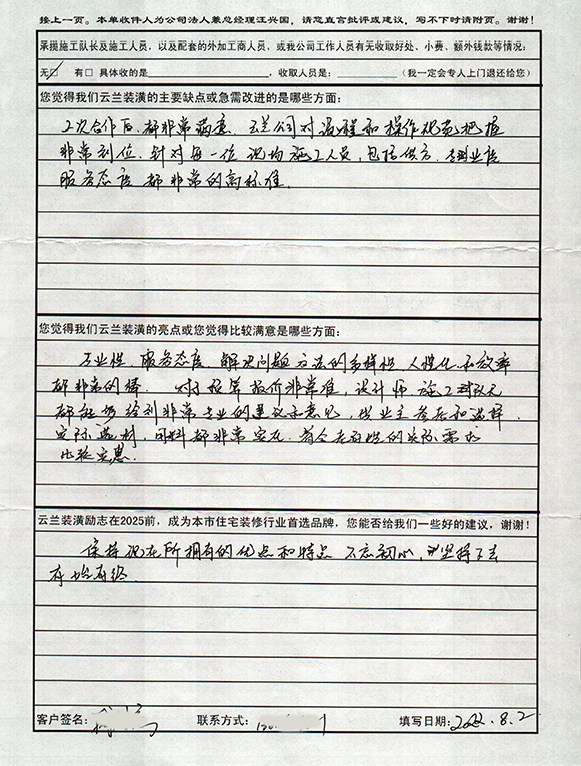 接上一页。本单收件人为公司法人兼总经理汪兴国，请您直言批评或建议，写不下时请附页。谢谢！
承揽施工队长及施工人员，以及配套的外加工商人员，或我公司工作人员有无收取好处、小费、额外钱款等情况：
无☑ 有□ 具体收的是，收取人员是：（我一定会专人上门退还给您）
您觉得我们云兰装潢的主要缺点或急需改进的是哪些方面：
2次合作后，都非常满意，云兰公司对流程和操作规范把握
非常到位，针对每一位施工人员，包括供方，专业度
服务态度都非常的高标准。
您觉得我们云兰装潢的亮点或您觉得比较满意是哪些方面：
专业性、服务态度、解决问题方法的多样性、人性化和效率
都非常的棒。对于预算报价非常准，设计师施工团队
都能够给到非常专业的建议和意见，供业主参考和选择，
实际选材，用料都非常实在，符合的实际需求
比较实惠。
云兰装潢励志在2025前，成为本市住宅装修行业首选品牌，您能否给我们一些好的建议，谢谢！
保持现在所拥有的优点和特点，不忘初心，坚持下去
有始有终
客户签名： 联系方式： 填写日期：2022.8.2